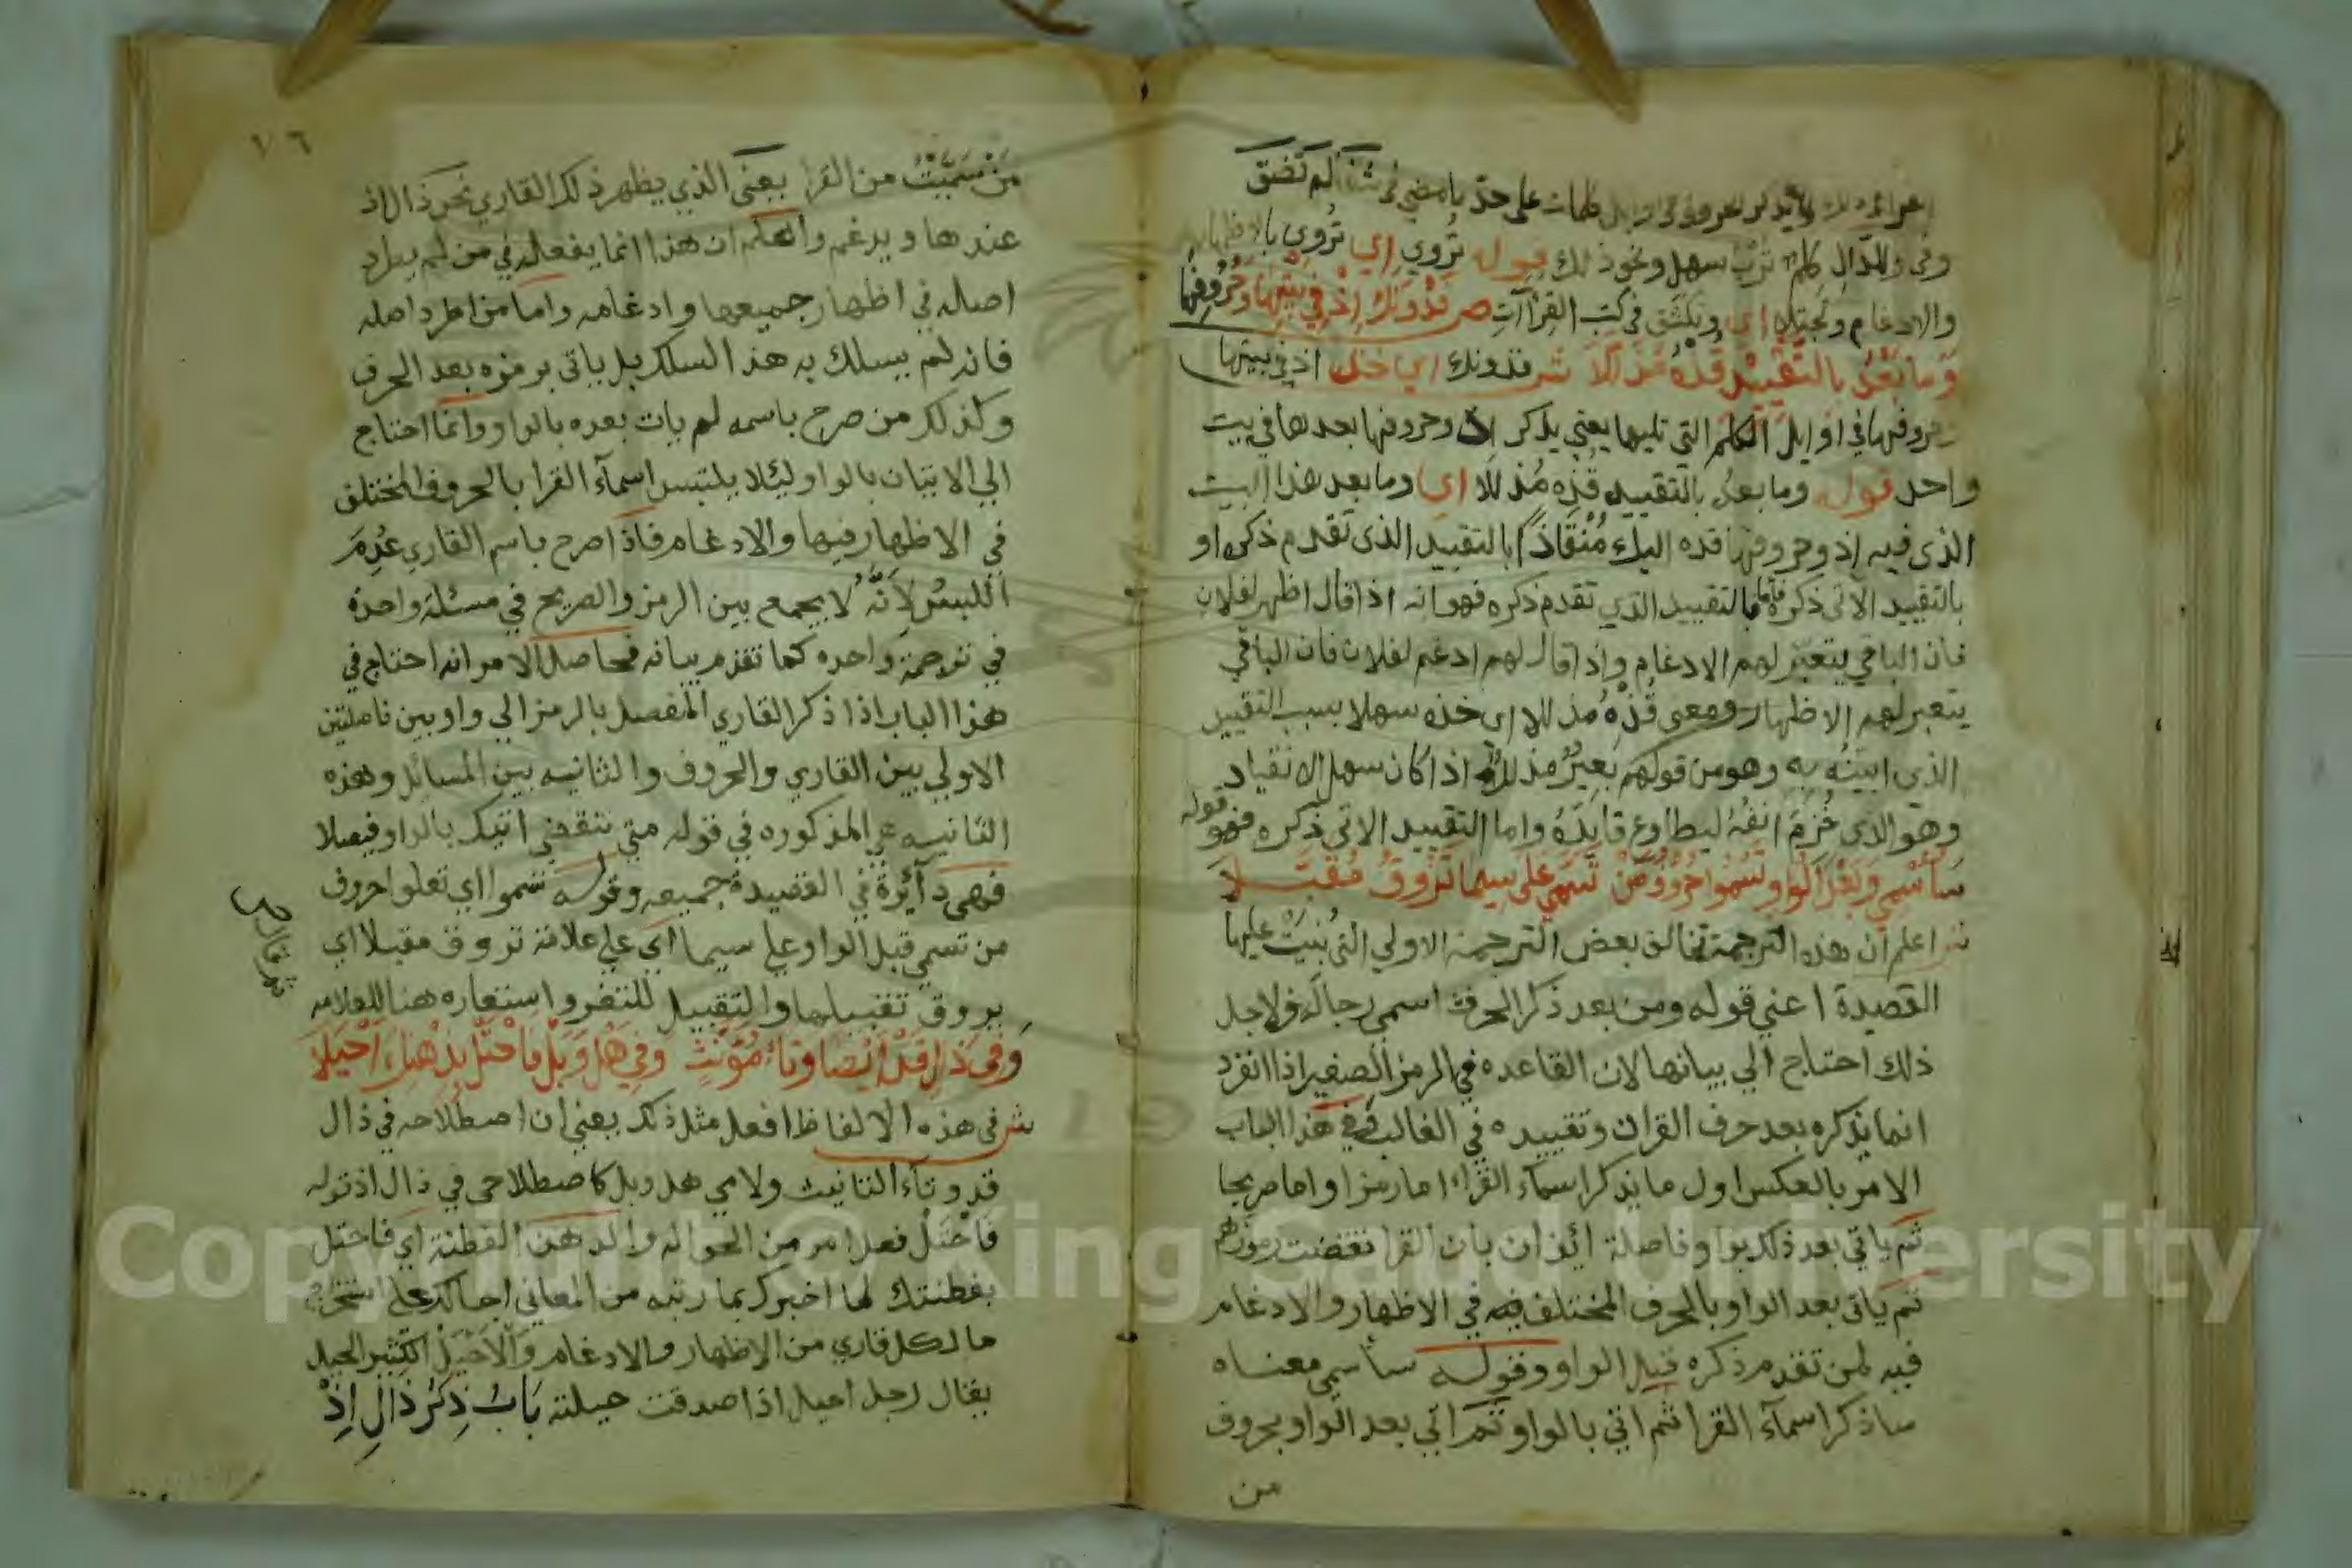 على حد ما مضى في شفا لم تضق
وفي والدال كلم ترب سهل ونحو ذلك قوله تُروي اي تُروي بالاظهار
والادغام وتجتلا اي وتكشف في كتب القراآت ص فدونك اذ في بيتها وحروفها
وما بعد بالتقييد قده مذللا ش فدونك اي خذ اذ في بيتها
وحروفها في اوايل الكلم التي تليها يعني يذكر اذ وحروفها بعدها في بيت
واحد قوله وما بعد بالتقييد قده مذللا اي وما بعد هذا البيت
الذى فيه اذ وحروفها قده اليك مُنْقَاذًا بالتقييد الذى تقدم ذكره او
بالتقييد الآتى ذكره فاما بالتقييد الذي تقدم ذكره فهو انه اذا قال اظهر لفلان
فان الباقي يتعين لهم الادغام واذا قال لهم ادغم لفلان فان الباقي
يتعين لهم الاظهار ومعنى قُدْهُ مذللا اى خذه سهلا بسبب التقييد
الذي ابينه به وهو من قولهم بَعِيرٌ مذلل اذا كان سهل الانقياد
وهو الذى خُزِمَ انفه ليطاوع قايده واما التقييد الاتى ذكره فهو قوله
سَأُسْمِي وَبَعْدَ الْوَاوِ تَسْمُوا حُرُوفُ مَنْ تَسَمَّى عَلَى سِيمَا تَرُوقُ مُقَبَّلَا
ش اعلم ان هذه الترجمة تخالف بعض الترجمة الاولي التى بُنِيَتْ عليها
القصيدة اعني قوله ومن بعد ذكر الحرف اسمي رجاله ولاجل
ذلك احتاج الي بيانها لان القاعده في الرمز الصغير اذا انفرد
انما يذكره بعد حرف القران وتقييده في الغالب ففي هذا الباب
الامر بالعكس اول ما يذكر اسماء القراء اما رمزا واما صريحا
ثم ياتي بعد ذلك بواو فاصلة ائذان بان القرا نقضت رموزهم
ثم ياتي بعد الواو بالحرف المختلف فيه في الاظهار والادغام
فيه لمن تقدم ذكره قبل الواو وقوله سأسمي معناه
ساذكر اسمآء القرا ثم اتي بالواو ثم اتي بعد الواو بحروف
من
١٦
من سميت من القرا يعنى الذي يظهر ذلك القاري نحو ذال اذ
عندها ويدغم واعلم ان هذا انما يفعله في من لم يطرد
اصله في اظهار جميعها وادغامه واما من اطرد اصله
فانه لم يسلك به هذا السلك بل ياتي برمزه بعد الحرف
وكذلك من صرح باسمه لم يات بعده بالواو وانما احتاج
الي الاتيان بالواو ليئلا يلتبس اسمآء القرا بالحروف المختلف
في الاظهار فيها والادغام فاذا صرح باسم القاري عُدِمَ
اللبس لأنه لا يجمع بين الرمز والصريح في مسئلة واحدة
في ترجمة واحده كما تقدم بيانه فحاصل الامر انه احتاج في
هذا الباب اذا ذكر القاري المفصل بالرمز الي واوين فاصلتين
الاولي بين القاري والحروف والثانيه بين المسائل وهذه
الثانيه هي المذكوره في قوله متى تنقضي اتيك بالواو فيصلا
فهي دآئرة في القصيدة جميعه وقوله تسموا اي تعلوا حروف
من تسمى قبل الواو على سيما اي على علامة تروق مقبلا اي
يروق تقبيلها والتقبيل للثغر واستعاره هنا للعلامه
وَفِي ذَالِ قَدْ أَيْضًا وَتَاءِ مُؤَنَّثٍ وَفِي هَلْ وَبَلْ فَاحْتَلْ بِذِهْنِكَ أَحْيَلَا
ش في هذه الالفاظ افعل مثل ذلك يعني ان اصطلاحه في ذال
قد وتاء التانيث ولامي هل وبل كاصطلاحى في ذال اذ قوله
فاحتل فعل امر من الحوالة والذهن الفطنة اي فاحتل
بفطنتك لما اخبرك بما رتبه من المعاني احالك على استخراج
ما لكل قاري من الاظهار والادغام والأحيل الكثير الحيل
يقال رجل احيل اذا صدقت حيلته بَابُ ذِكْرُ ذَالِ إِذْ